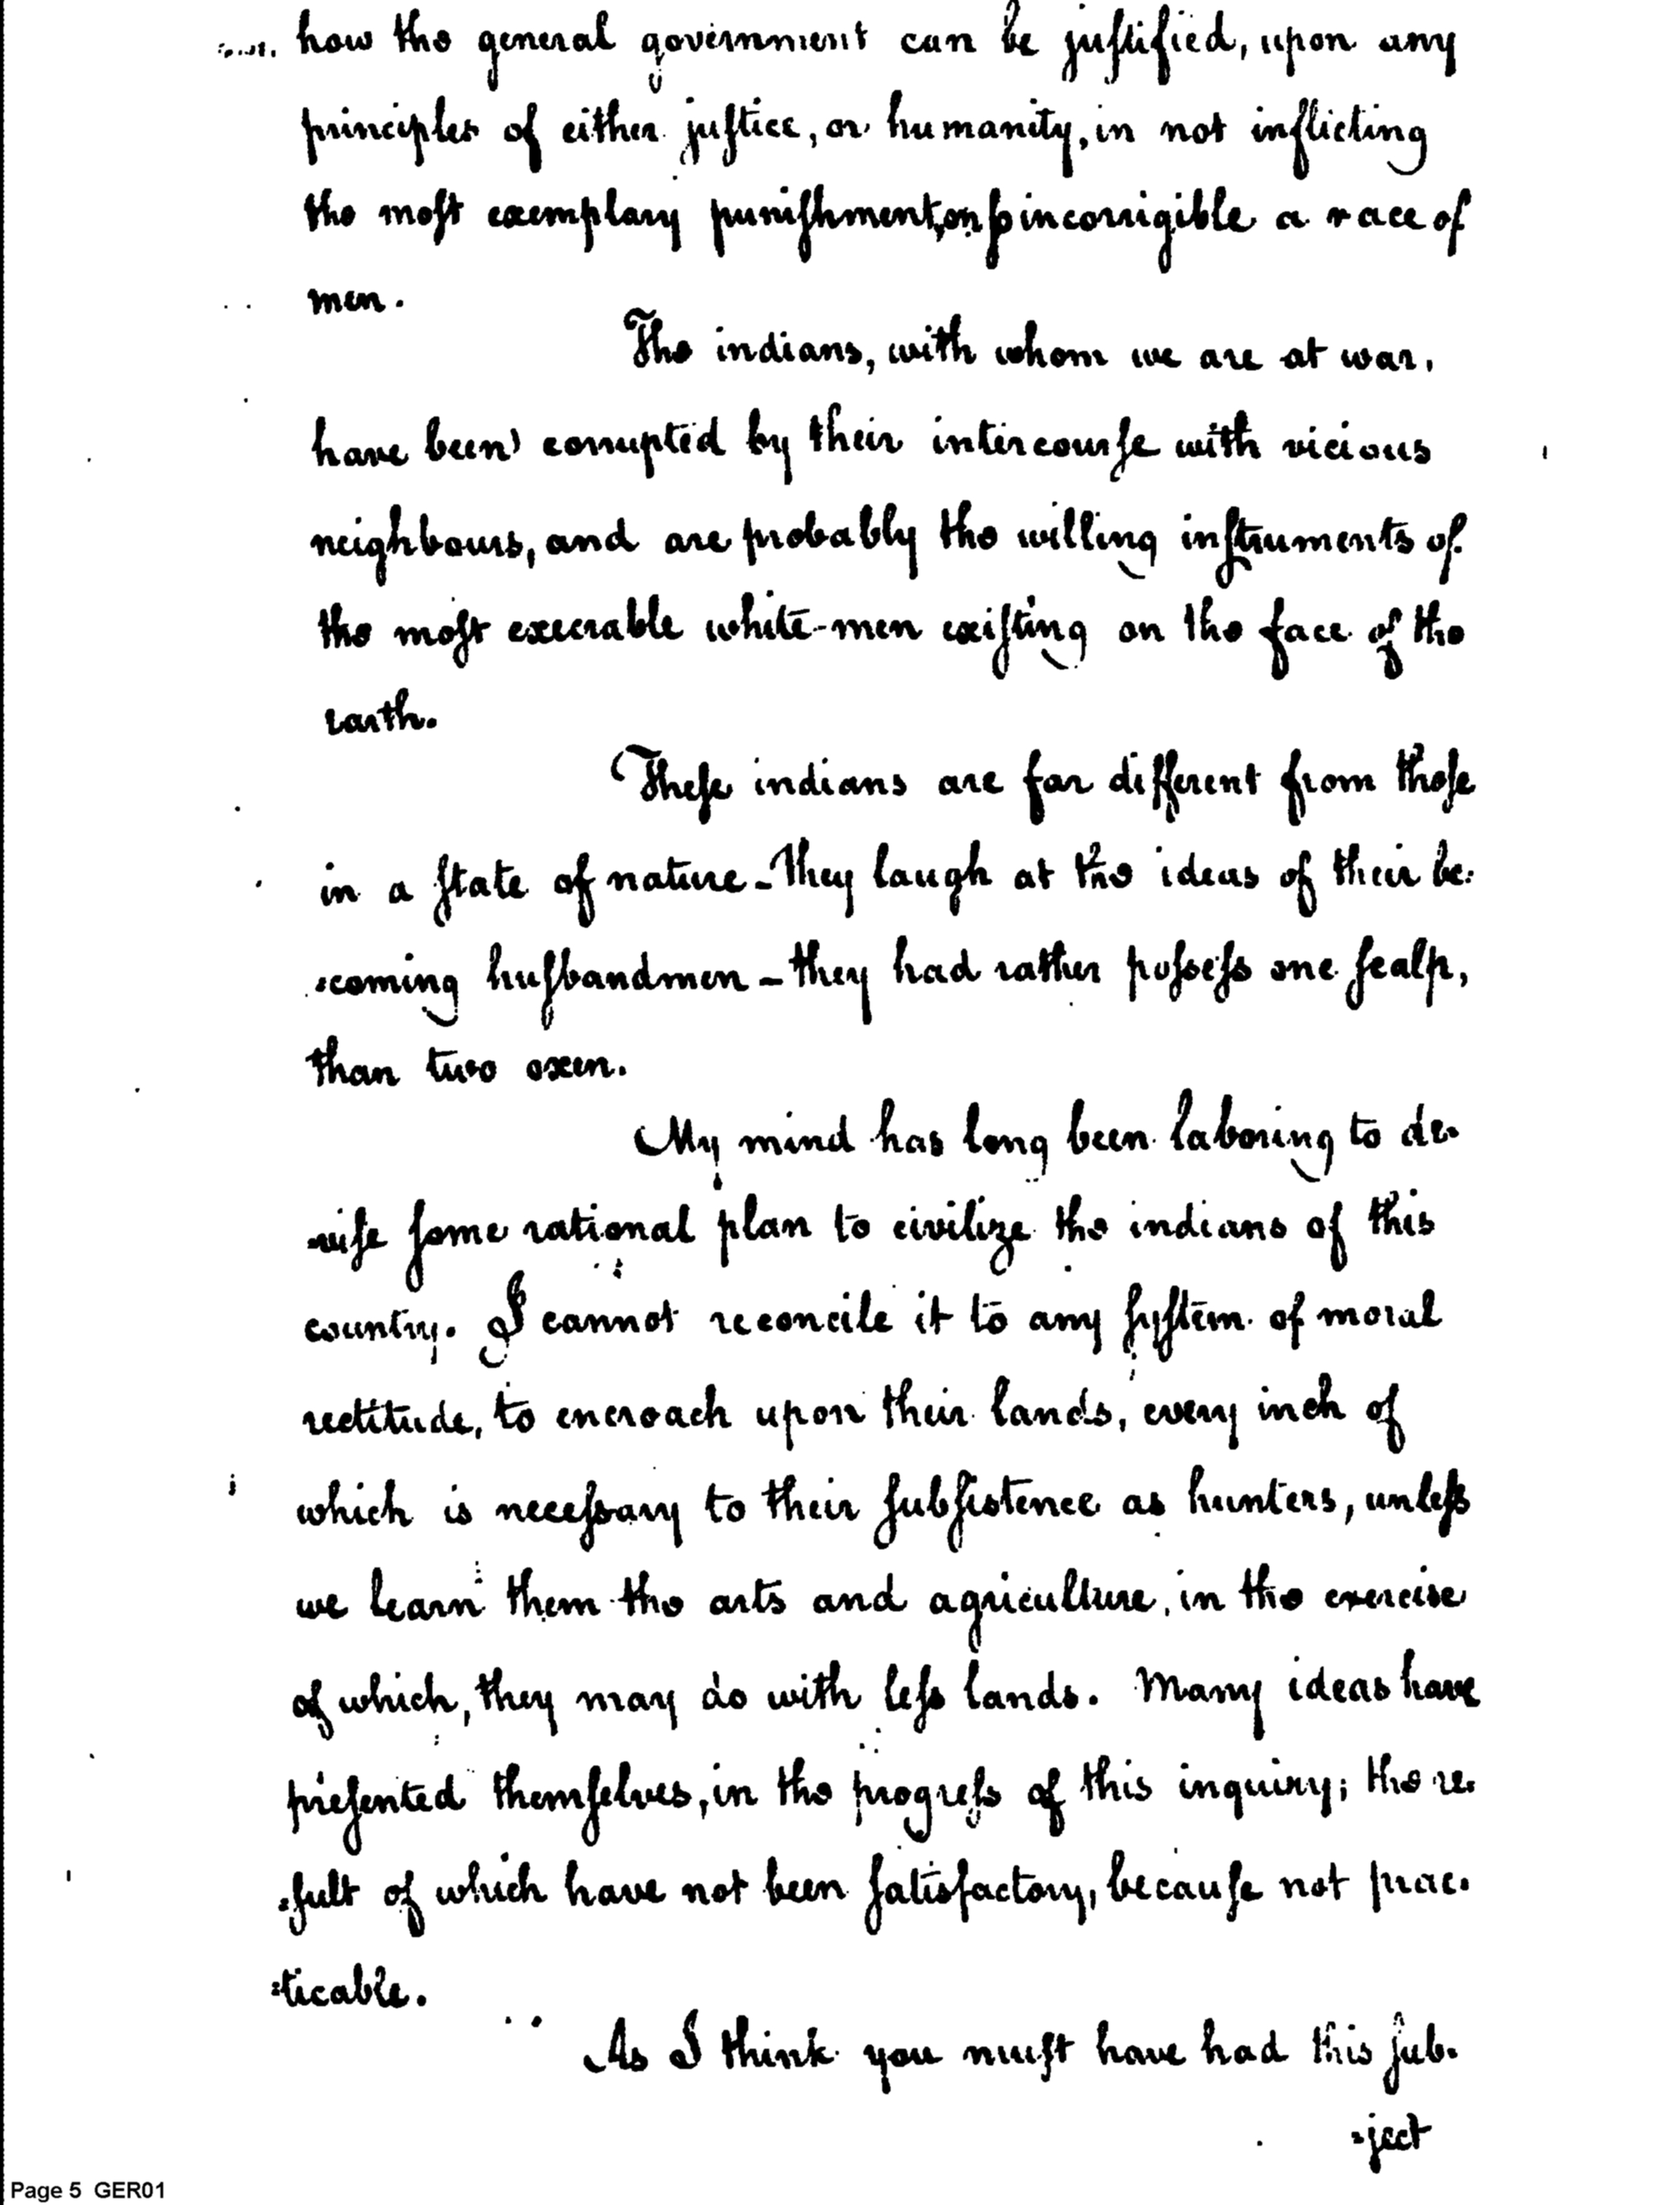 how the general government can be juſtified, upon any
principles of either juſtice, or humanity, in not inflicting
the moſt exemplary puniſhment, on ſo incorrigible a race of
men.
The indians, with whom we are at war,
have been corrupted by their intercourſe with vicious
neighbours, and are probably the willing inſtruments of
the moſt execrable white-men exiſting on the face of the
earth.
Theſe indians are far different from thoſe
in a ſtate of nature - They laugh at the ideas of their be-
=coming huſbandmen - they had rather poſseſs one ſcalp,
than two oxen.
My mind has long been laboring to de-
-viſe ſome rational plan to civilize the indians of this
country. I cannot reconcile it to any ſyſtem of moral
rectitude, to encroach upon their lands, every inch of
which is neceſsary to their ſubſistence as hunters, unleſs
we learn them the arts and agriculture, in the exercise
of which, they may do with leſs lands. Many ideas have
preſented themſelves, in the progreſs of this inquiry; the re-
=ſult of which have not been ſatisfactory, becauſe not prac-
=ticable.
As I think you muſt have had this ſub-
=ject
Page 5 GER01